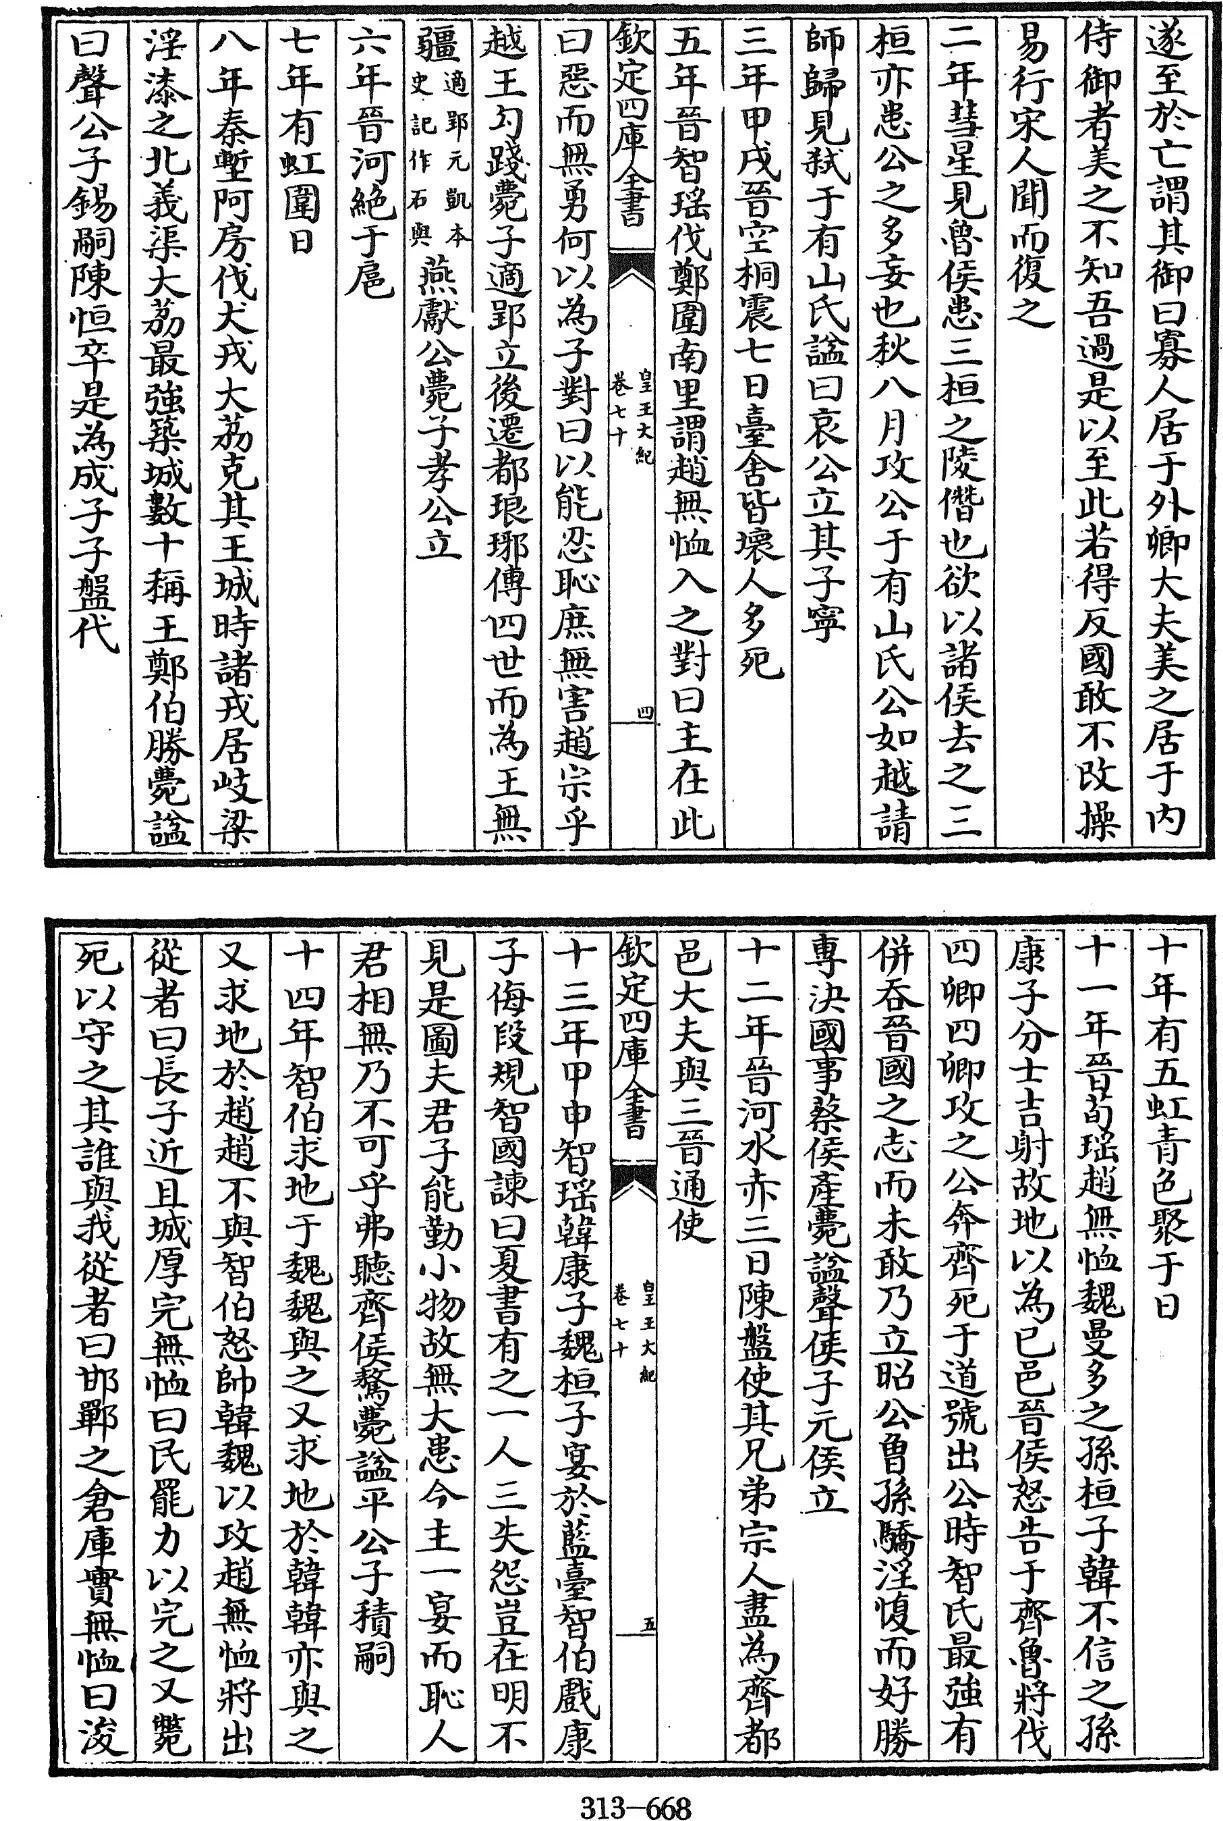 遂至於亡謂其御曰寡人居于外卿大夫美之居于内
侍御者美之不知吾過是以至此若得反國敢不改操
易行宋人聞而復之
二年彗星見魯侯患三桓之陵僭也欲以諸侯去之三
桓亦患公之多妄也秋八月攻公于有山氏公如越請
師歸見弑于有山氏諡曰哀公立其子寧
三年甲戌晉空桐震七日臺舍皆壞人多死
五年晉智瑶伐鄭圍南里謂趙無恤入之對曰主在此
欽定四庫全書
皇王大紀
卷七十
四
曰惡而無勇何以為子對曰以能忍恥庶無害趙宗乎
越王勾踐薨子適郢立後遷都琅琊傳四世而為王無
疆適郢元凱本史記作石與燕獻公薨子孝公立
六年晉河絶于扈
七年有虹圍日
八年秦塹阿房伐犬戎大荔克其王城時諸戎居岐梁
淫漆之北義渠大荔最強築城數十稱王鄭伯勝薨諡
曰聲公子錫嗣陳恒卒是為成子子盤代
十年有五虹青色聚于日
十一年晉荀瑶趙無恤魏曼多之孫桓子韓不信之孫
康子分士吉射故地以為已邑晉侯怒告于齊魯將伐
四卿四卿攻之公奔齊死于道號出公時智氏最強有
併吞晉國之志而未敢乃立昭公魯孫驕淫愎而好勝
專決國事蔡侯產薨諡聲侯子元侯立
十二年晉河水赤三日陳盤使其兄弟宗人盡為齊都
邑大夫與三晉通使
欽定四庫全書
皇王大紀
卷七十
五
十三年甲申智瑶韓康子魏桓子宴於藍臺智伯戲康
子侮段規智國諫曰夏書有之一人三失怨豈在明不
見是圖夫君子能勤小物故無大患今主一宴而恥人
君相無乃不可乎弗聽齊侯驁薨諡平公子積嗣
十四年智伯求地于魏魏與之又求地於韓韓亦與之
又求地於趙趙不與智伯怒帥韓魏以攻趙無恤將出
從者曰長子近且城厚完無恤曰民罷力以完之又斃
死以守之其誰與我從者曰邯鄲之倉庫實無恤曰浚
313-668